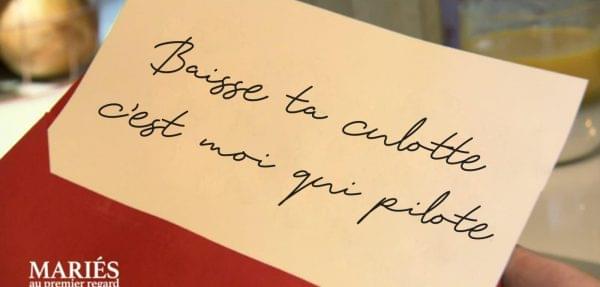 Baisse ta culotte
c'est moi qui pilote
MARIÉS
au premier regard